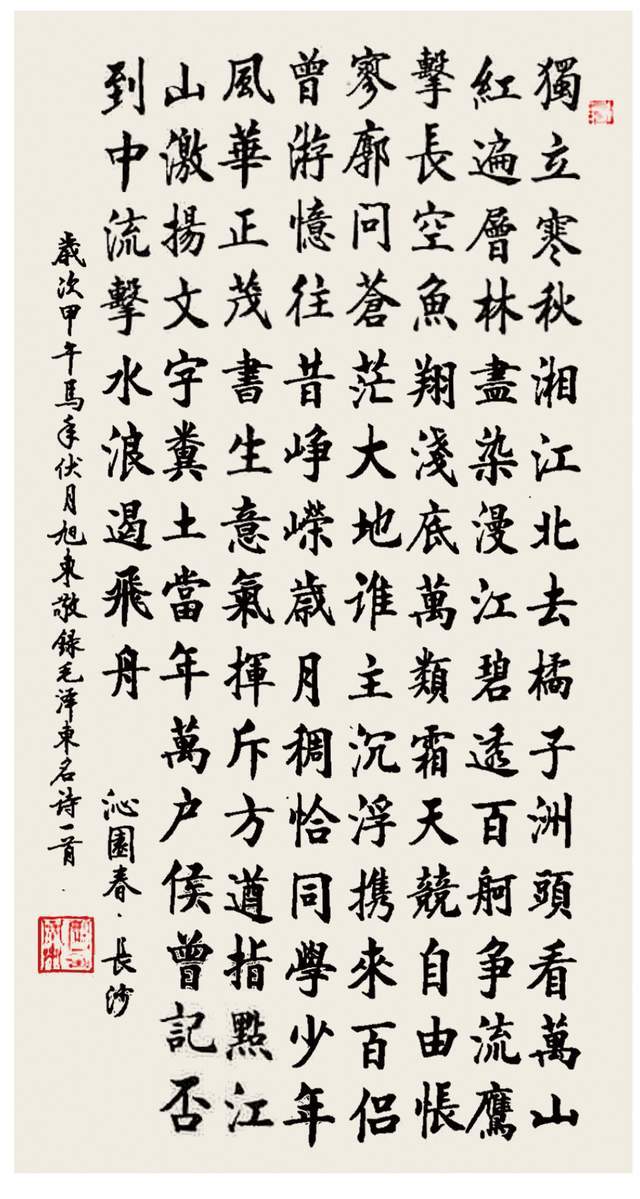 獨立寒秋湘江北去橘子洲頭看萬山
紅遍層林盡染漫江碧透百舸争流鷹
擊長空魚翔淺底萬類霜天競自由悵
寥廓問蒼茫大地谁主沉浮携來百侣
曾游憶往昔峥嶸歲月稠恰同學少年
風華正茂書生意氣揮斥方遒指點江
山激揚文字糞土當年萬户侯曾記否
到中流擊水浪遏飛舟 沁園春·長沙
歲次甲午馬年伏月旭東敬録毛泽東名诗一首